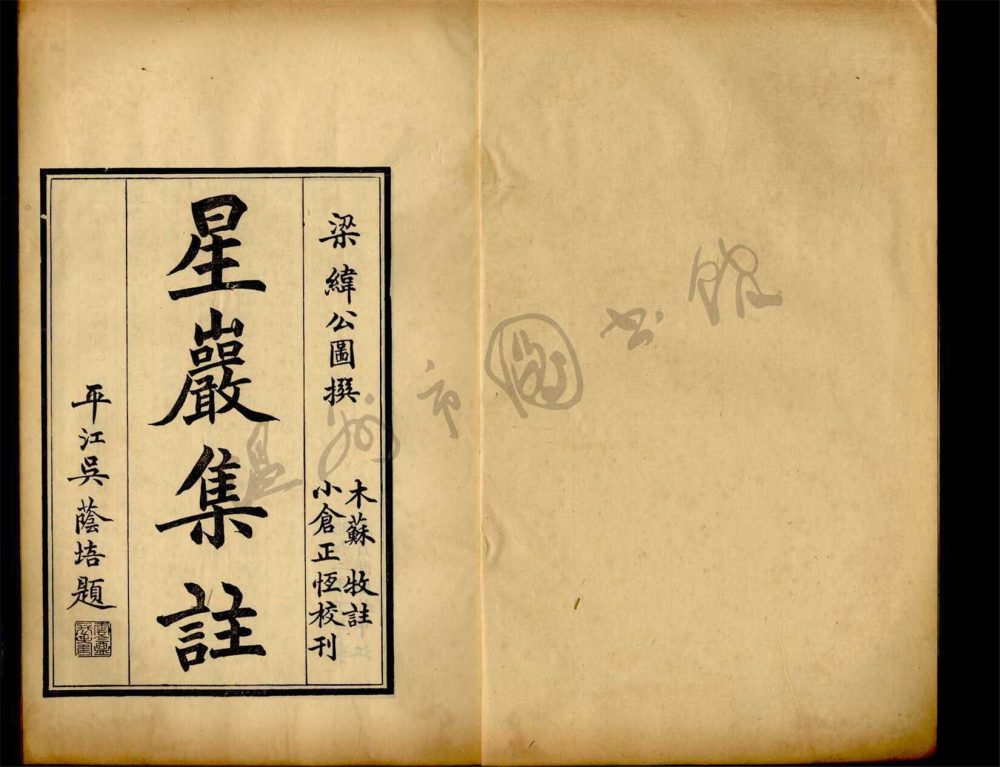 梁緯公圖撰
木蘇牧註
小倉正恆校刊
星巖集註
平江吳蔭培題
溫州市圖書館